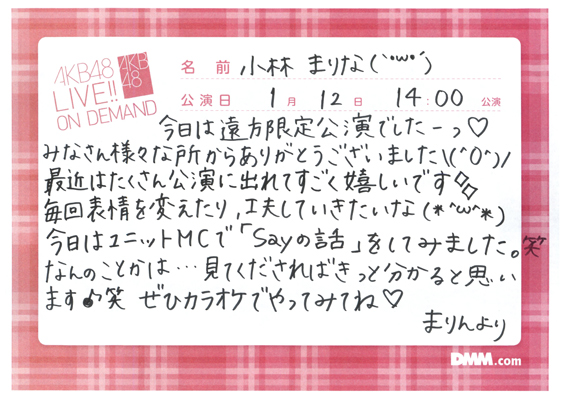 AKB48
LIVE!!
ON DEMAND
AKB
48
名 前 小林 まりな(`･ω･´)
公演日 1月 12日 14:00 公演
今日は遠方限定公演でしたーっ♡
みなさん様々な所からありがとうございました\(^O^)/
最近はたくさん公演に出れてすごく嬉しいです◇◇
毎回表情を変えたり、工夫していきたいな(*^ω^*)
今日はユニットMCで「Sayの話」をしてみました。笑
なんのことかは…見てくださればきっと分かると思い
ます♪笑 ぜひカラオケでやってみてね♡
まりんより
DMM.com